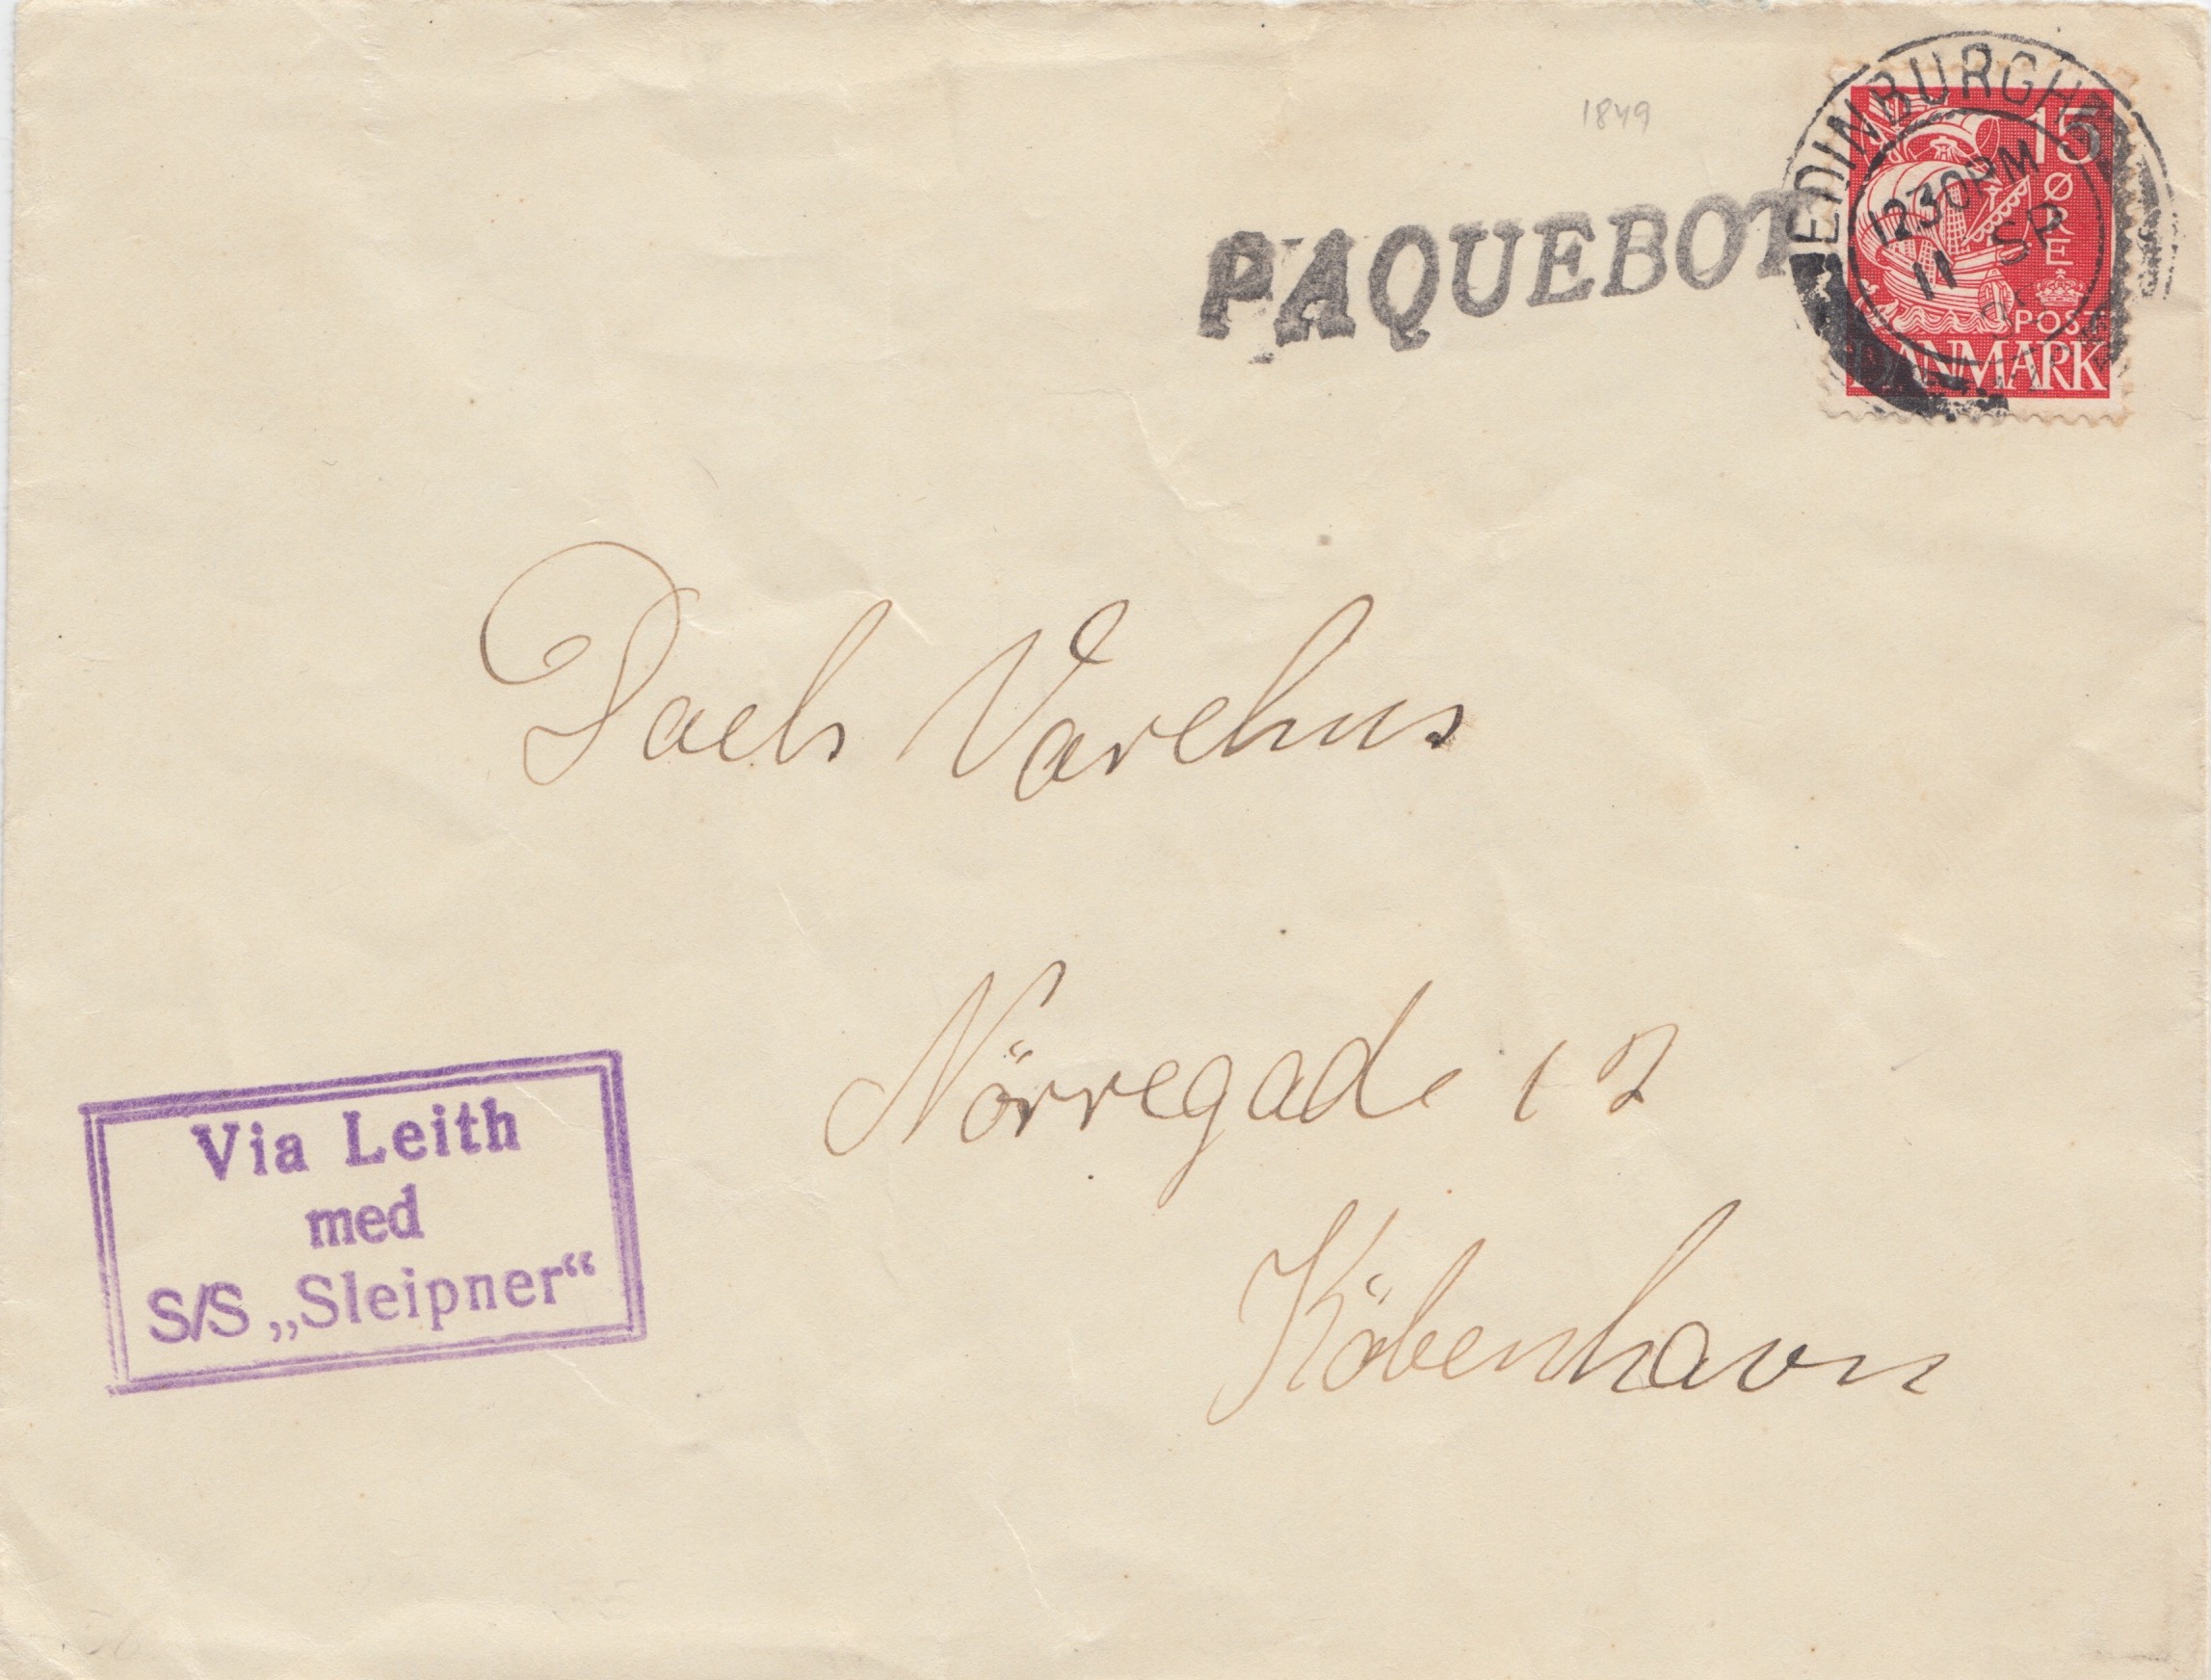 1849
EDINBURGH
12 30 PM
11 SP
15
ØRE
POST
DANMARK
PAQUEBOT
Daels Varehus
Nörregade 12
Köbenhavn
Via Leith
med
S/S „Sleipner“